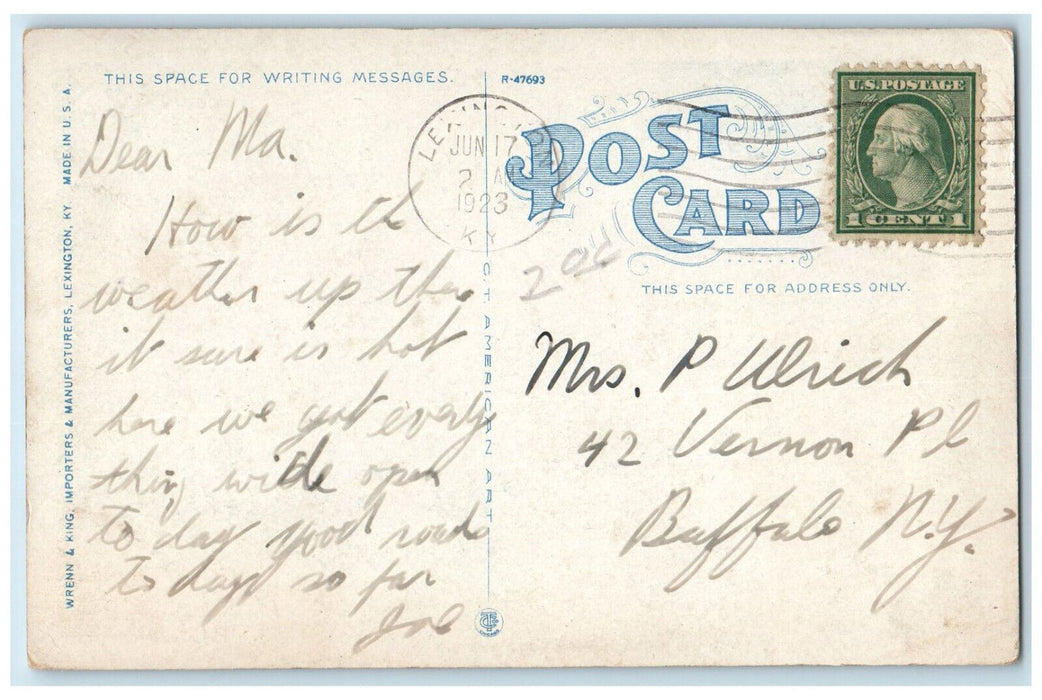 THIS SPACE FOR WRITING MESSAGES.
R-47693
Dear Ma.
How is th
weather up ther
it sure is hot
here we got every
thing wide open
to day good roads
to day so far
Joe
WRENN & KING, IMPORTERS & MANUFACTURERS, LEXINGTON, KY. MADE IN U.S.A.
C.T. AMERICAN ART
JUN 17
1923
KY
POST
CARD
U.S. POSTAGE
1 CENT 1
THIS SPACE FOR ADDRESS ONLY.
Mrs. P Ulrich
42 Vernon Pl
Buffalo N.Y.